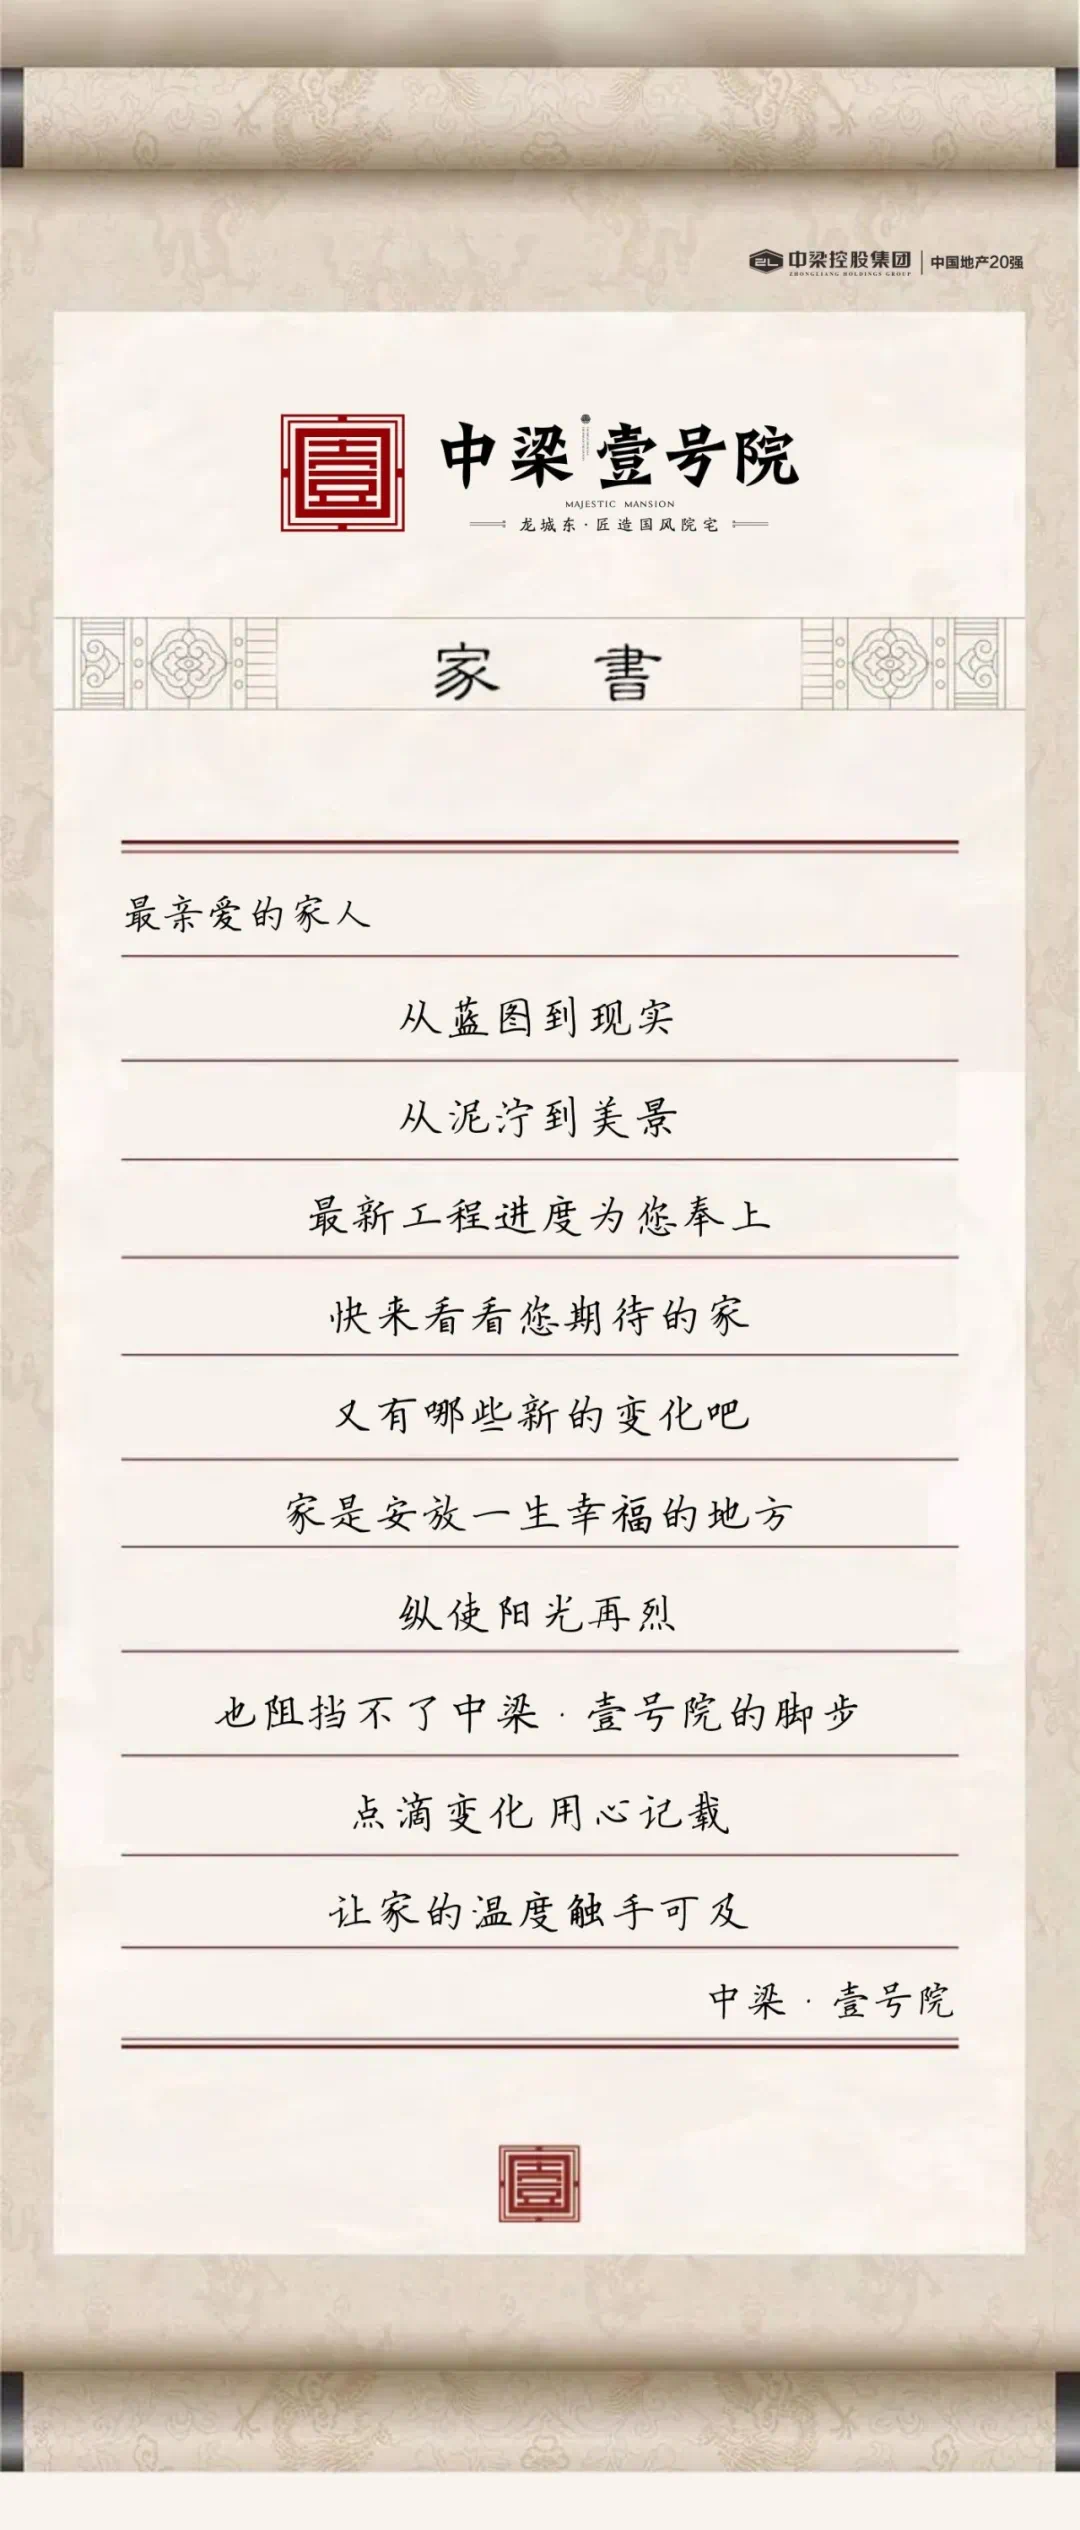 中梁控股集团 中国地产20强
ZHONGLIANG HOLDINGS GROUP
壹 中梁 壹号院
MAJESTIC MANSION
龙城东·匠造国风院宅
家 書
最亲爱的家人
从蓝图到现实
从泥泞到美景
最新工程进度为您奉上
快来看看您期待的家
又有哪些新的变化吧
家是安放一生幸福的地方
纵使阳光再烈
也阻挡不了中梁·壹号院的脚步
点滴变化 用心记载
让家的温度触手可及
中梁·壹号院
壹